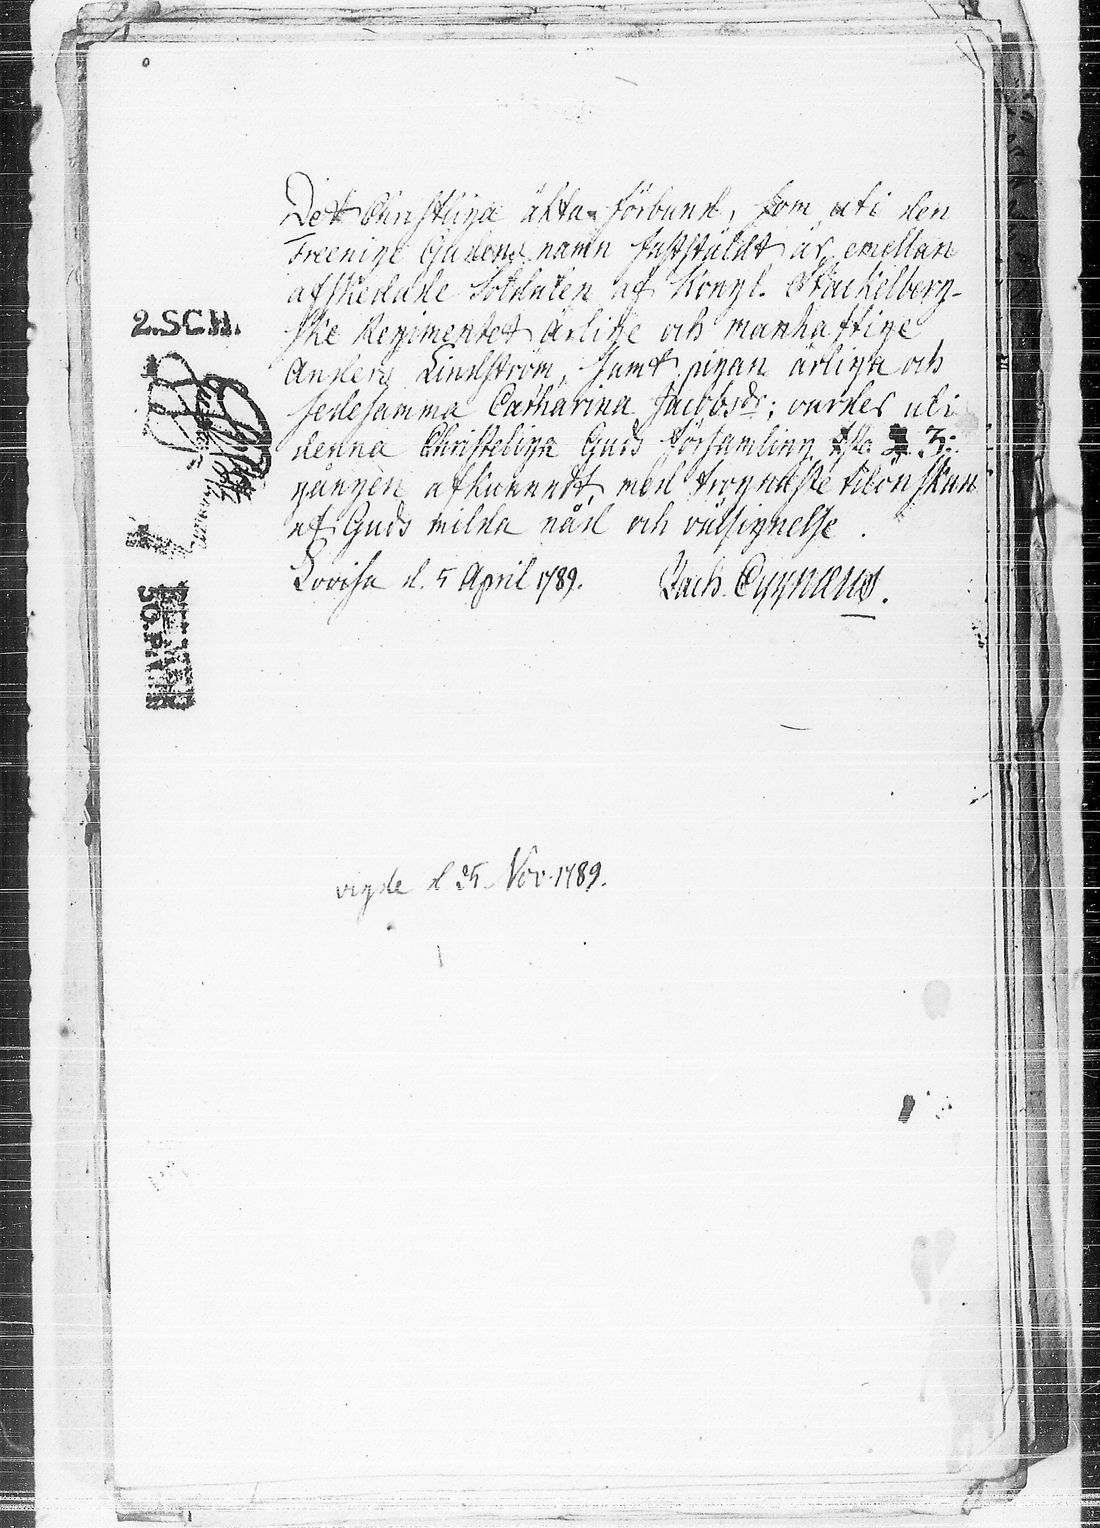 Det Christliga äkta förbund, som uti den
Treenige Gudens namn fastställdt är, emellan
afskedade Soldaten af Kongl. Stackelberg-
ske Regimentet ärlige och manhaftige
2.SCH.
Anders Lindström, samt pigan ärliga och
sedesamma Catharina Jacobsdr; varder uti
denna Christeliga Guds församling 3:
gången afkunnadt, med trognaste tilönskan
af Guds milda nåd och välsignelse.
Lovisa d. 5 April 1789. Zach. Cygnæus.
vigde d 25 Nov. 1789.